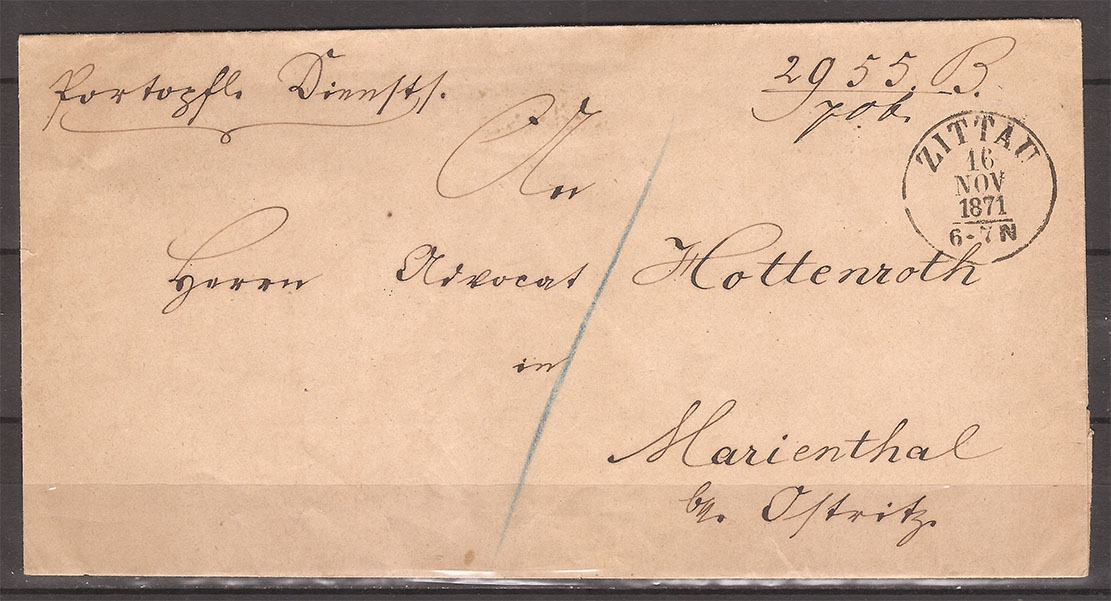 Portopfl. Diensts.
2955. B.
ZITTAU
16
NOV
1871
6-7N
An
Herrn Advocat Hottenroth
in
Marienthal
b. Ostritz.